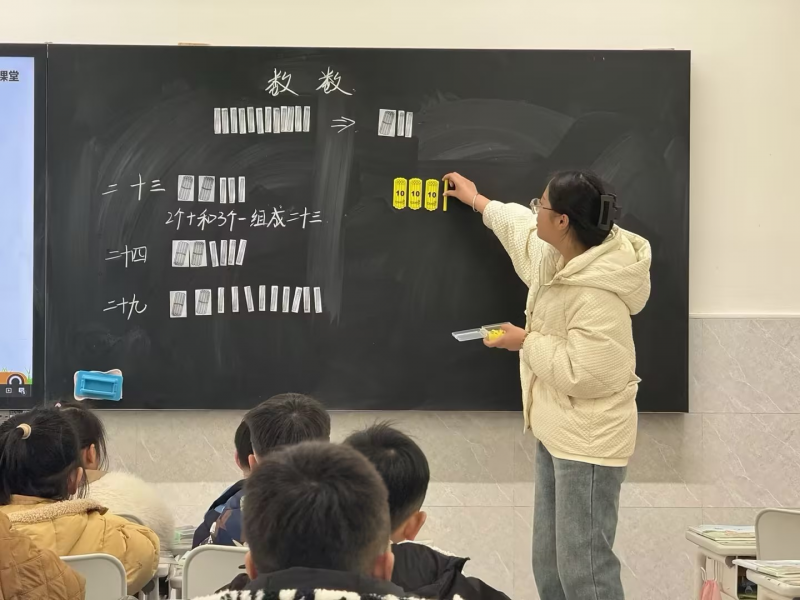 课堂
数 数
⇒
10 10 10
二十三
2个十和3个一组成二十三
二十四
二十九